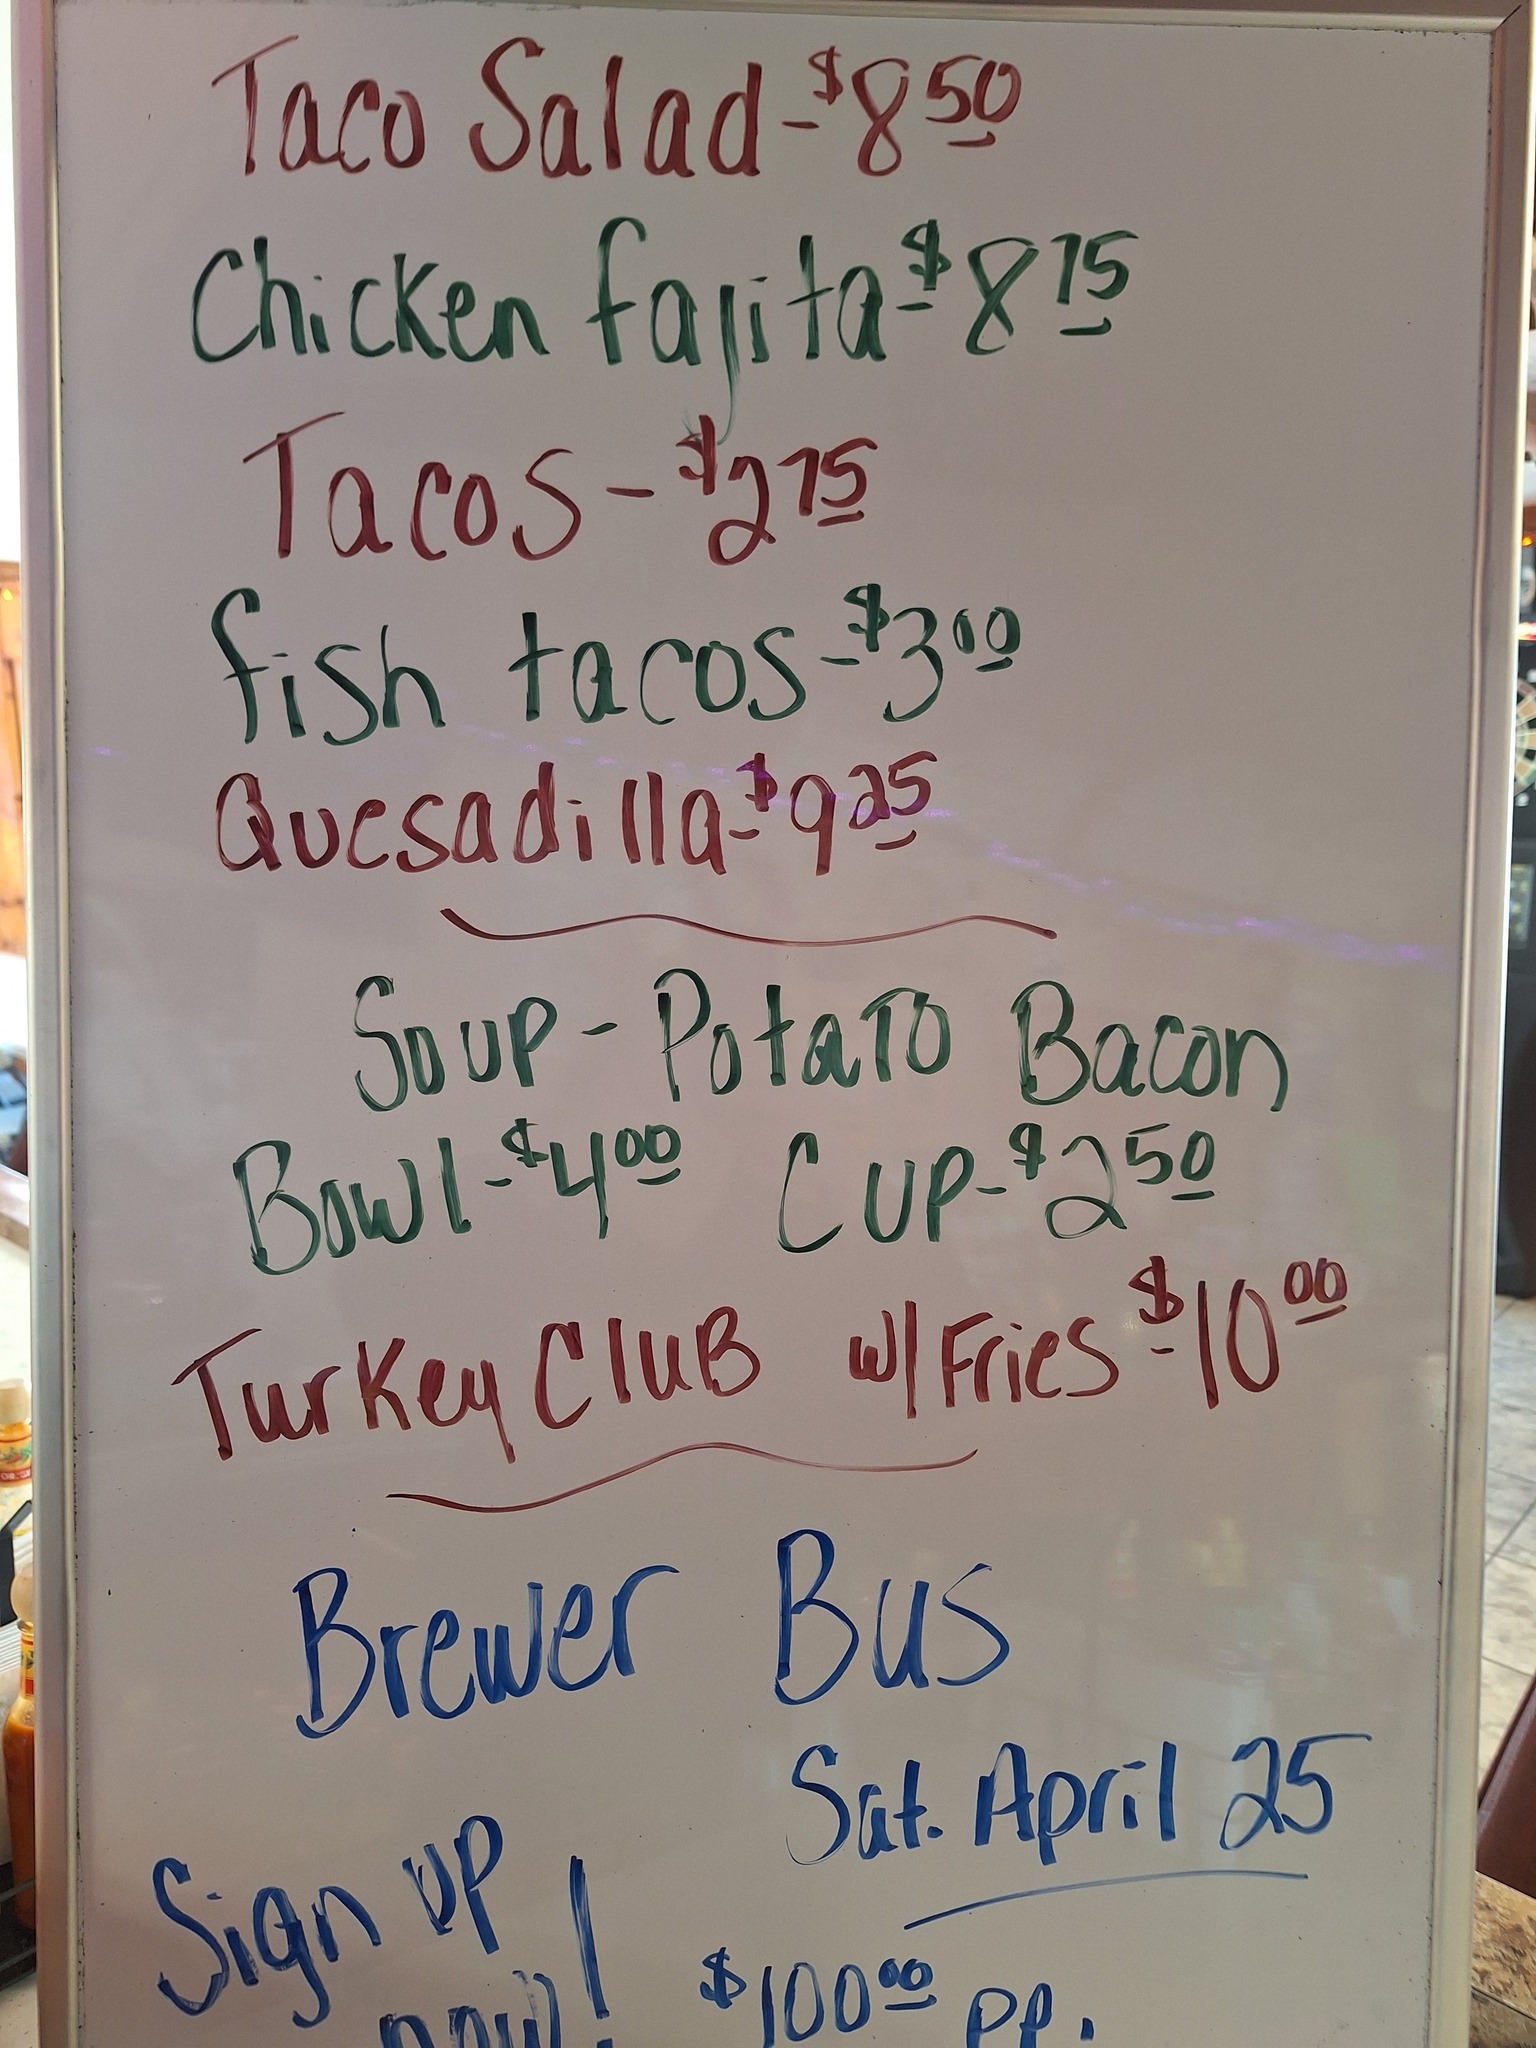 Taco Salad - $8 50
Chicken fajita - $8 75
Tacos - $2 75
fish tacos - $3 00
Quesadilla - $9 25
Soup - Potato Bacon
Bowl - $4 00 Cup - $2 50
Turkey Club w/ Fries - $10 00
Brewer Bus
Sat. April 25
Sign up
now!
$100 00 pp.